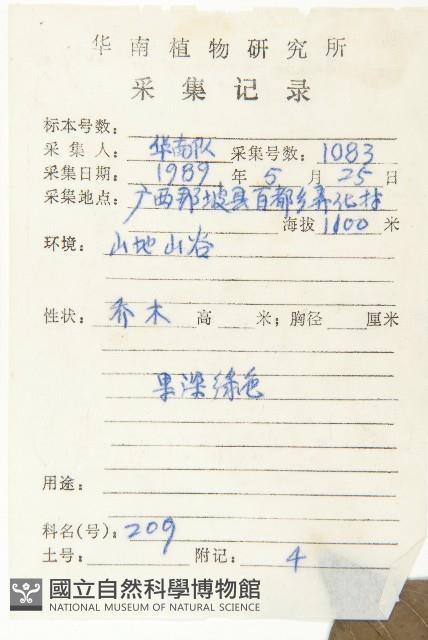 华南植物研究所
采集记录
标本号数:
采集人: 华南队 采集号数: 1083
采集日期: 1989 年 5 月 25 日
采集地点: 广西那坡县百都乡弄化村
海拔 1100 米
环境: 山地山谷
性状: 乔木 高 米; 胸径 厘米
果深绿色
用途:
科名(号): 209
土号: 附记: 4
國立自然科學博物館
NATIONAL MUSEUM OF NATURAL SCIENCE